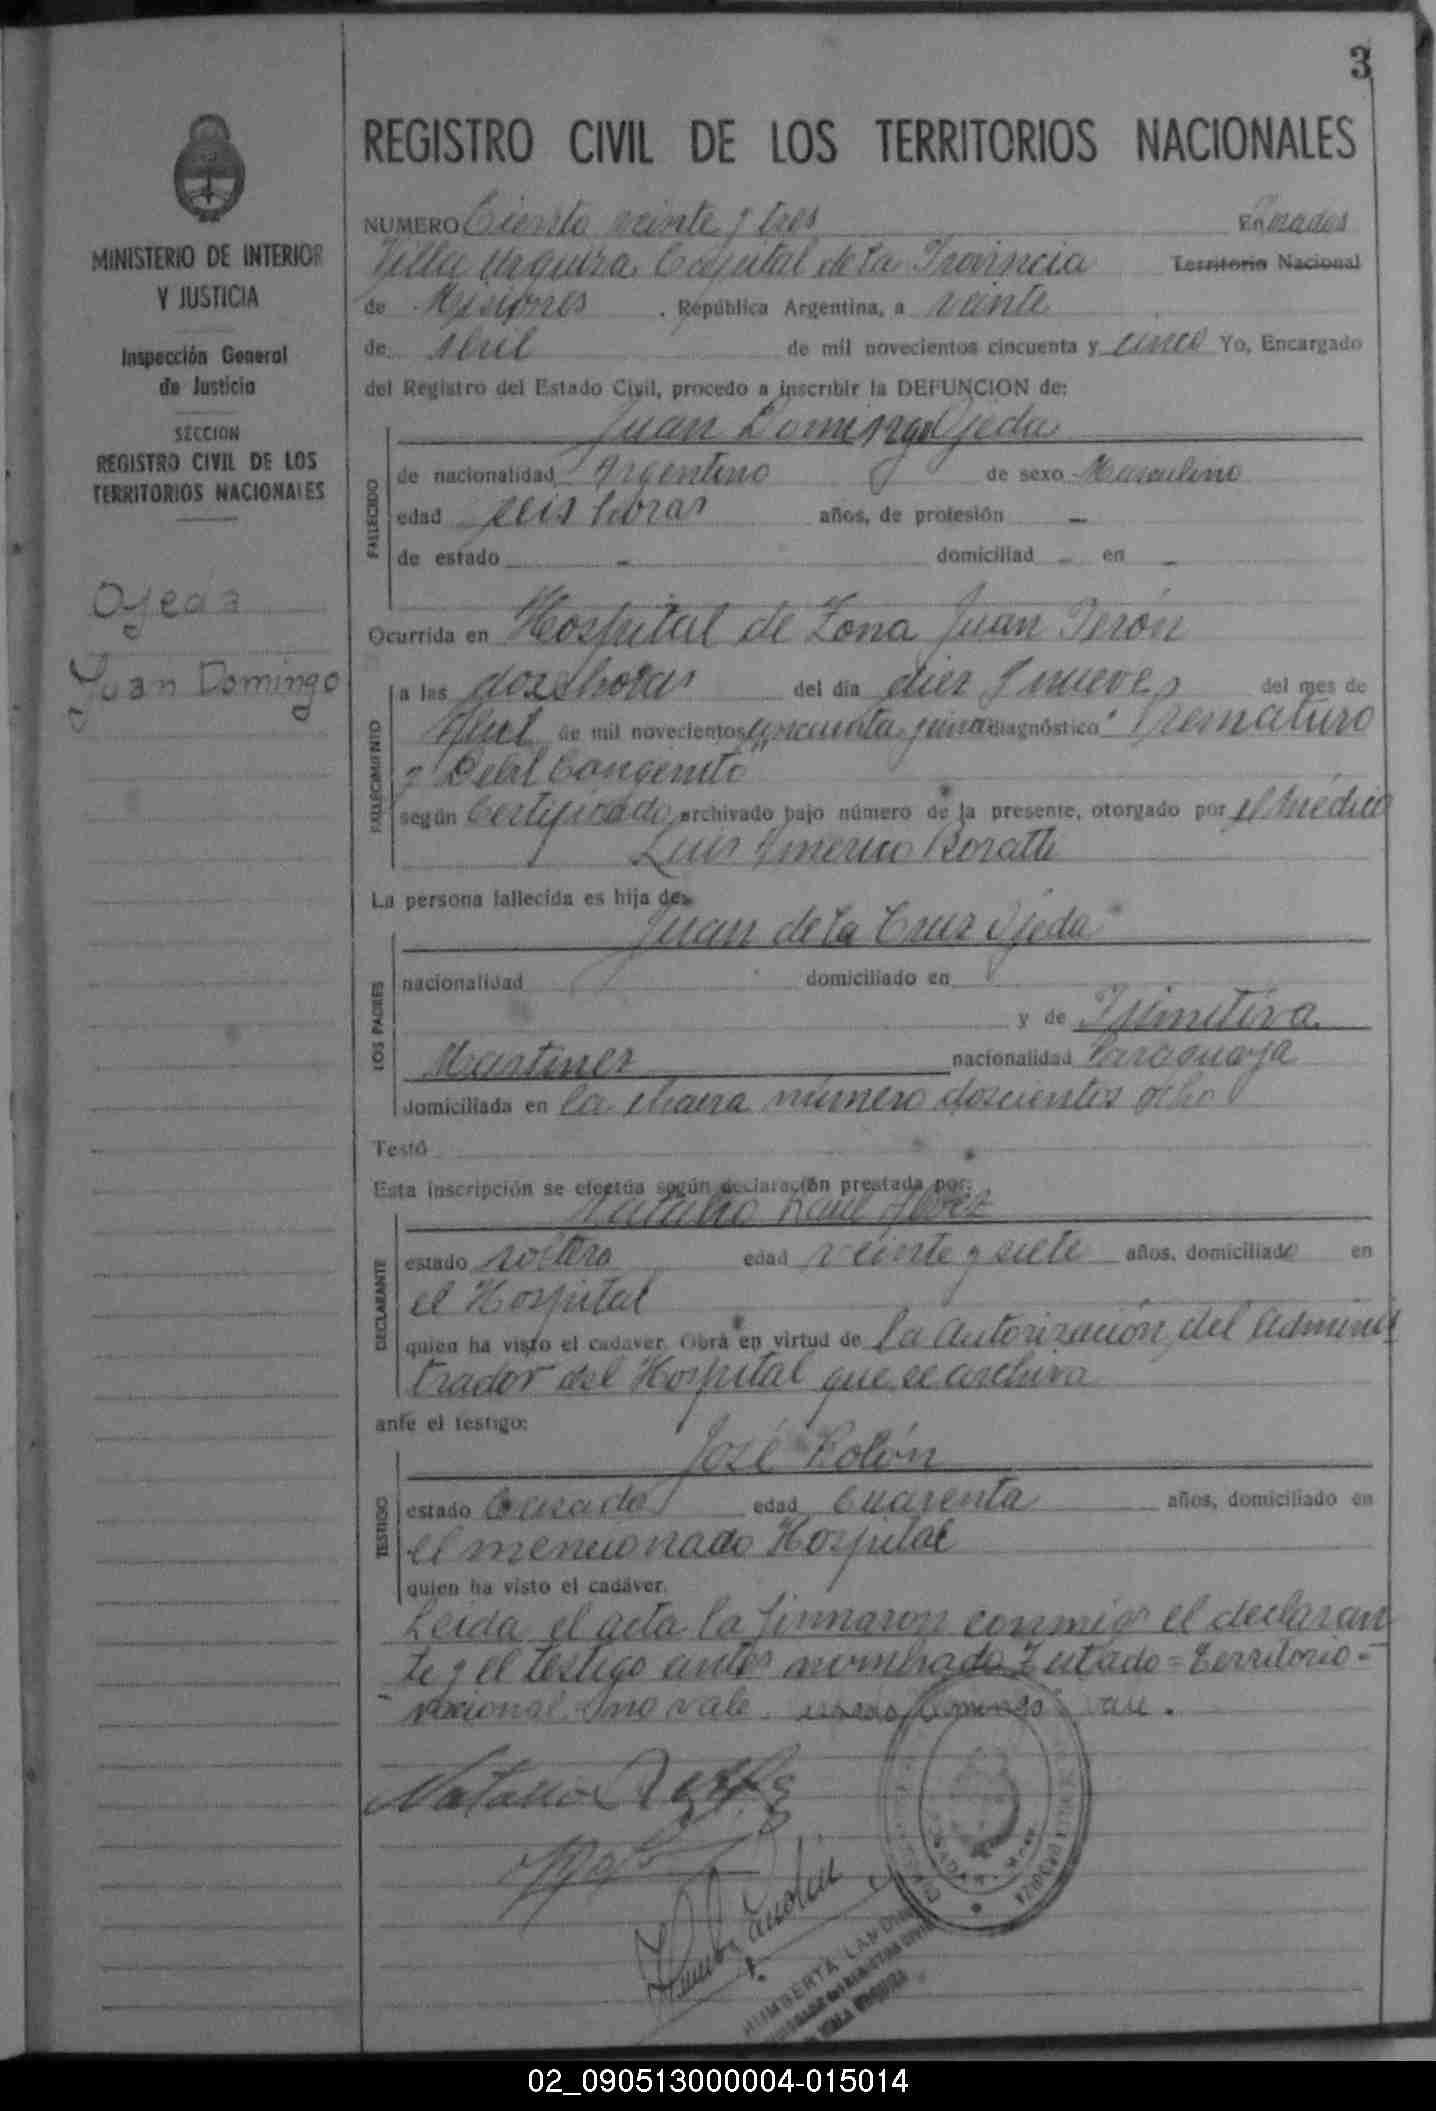 3
REGISTRO CIVIL DE LOS TERRITORIOS NACIONALES
MINISTERIO DE INTERIOR
Y JUSTICIA
Inspección General
de Justicia
SECCION
REGISTRO CIVIL DE LOS
TERRITORIOS NACIONALES
Ojeda
Juan Domingo
NUMERO Ciento veinte y tres En Posadas
Villa Urquiza Capital de la Provincia Territorio Nacional
de Misiones . República Argentina, a veinte
de Abril de mil novecientos cincuenta y cinco Yo, Encargado
del Registro del Estado Civil, procedo a inscribir la DEFUNCION de:
Juan Domingo Ojeda
FALLECIDO
de nacionalidad Argentino de sexo Masculino
edad seis horas años, de profesión -
de estado - domiciliad - en -
Ocurrida en Hospital de Zona Juan Perón
FALLECIMIENTO
a las doze horas del día diez y nueve del mes de
Abril de mil novecientos cincuenta y cinco diagnóstico "Prematuro
y Debil Congenito"
según Certificado archivado bajo número de la presente, otorgado por el médico
Luis Americo Boratti
La persona fallecida es hija de:
Juan de la Cruz Ojeda
LOS PADRES
nacionalidad domiciliado en
y de Primitiva
Martinez nacionalidad Paraguaya
domiciliada en la chacra número doscientos ocho
Testó
Esta inscripción se efectúa según declaración prestada por:
Natalio Raul
DECLARANTE
estado soltero edad veinte y siete años, domiciliado en
el Hospital
quien ha visto el cadaver. Obra en virtud de la autorización del adminis
trador del Hospital que se archiva
ante el testigo:
José Rolón
TESTIGO
estado Casado edad Cuarenta años, domiciliado en
el mencionado Hospital
quien ha visto el cadáver.
Leida el acta la firmaron conmigo el declaran
te y el testigo antes nombrado Testado = Territorio =
nacional = no vale. Domingo" vale.
HUMBERTA
02_090513000004-015014